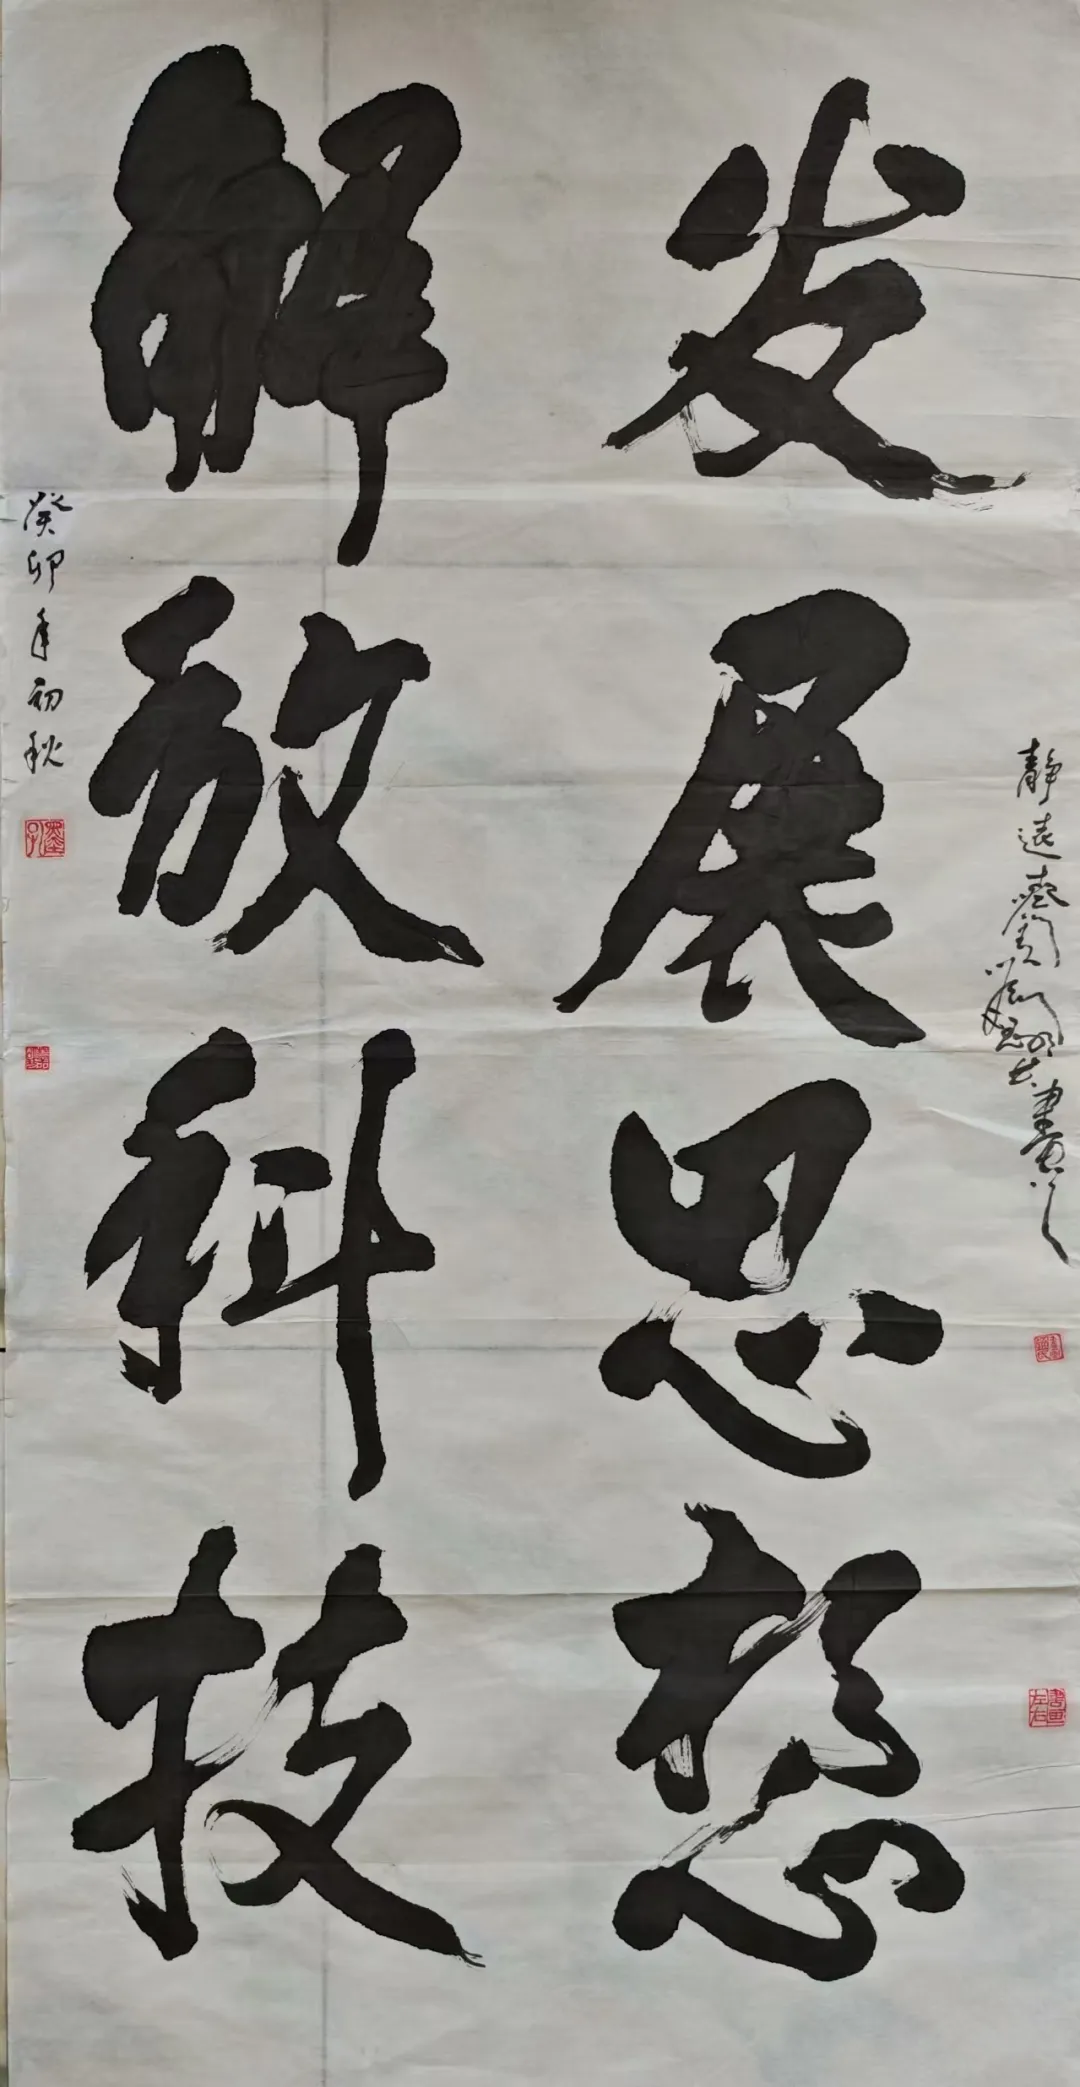 发展思想
解放科技
静远
书画
癸卯年初秋